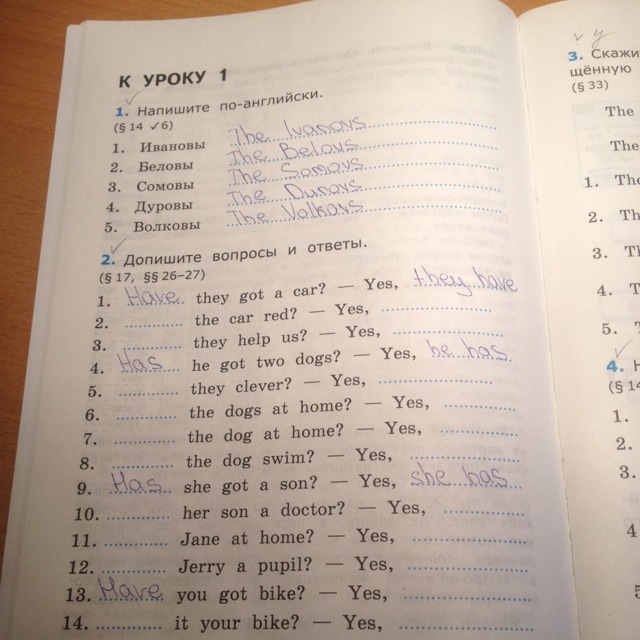 К УРОКУ 1
1. Напишите по-английски.
(§ 14 ✓6)
1. Ивановы The Ivanovs
2. Беловы The Belovs
3. Сомовы The Somovs
4. Дуровы The Durovs
5. Волковы The Volkovs
2. Допишите вопросы и ответы.
(§ 17, §§ 26–27)
1. Have they got a car? — Yes, they have
2. ............ the car red? — Yes, ....................
3. ............ they help us? — Yes, ....................
4. Has he got two dogs? — Yes, he has
5. ............ they clever? — Yes, ....................
6. ............ the dogs at home? — Yes, ....................
7. ............ the dog at home? — Yes, ....................
8. ............ the dog swim? — Yes, ....................
9. Has she got a son? — Yes, she has
10. ............ her son a doctor? — Yes, ....................
11. ............ Jane at home? — Yes, ....................
12. ............ Jerry a pupil? — Yes, ....................
13. Have you got bike? — Yes, ....................
14. ............ it your bike? — Yes, ....................
у
3. Скажи
щённую
(§ 33)
The
The
1. The
2. Th
3. T
4. T
5. T
4. Н
(§ 14
1.
2.
3.
4
5